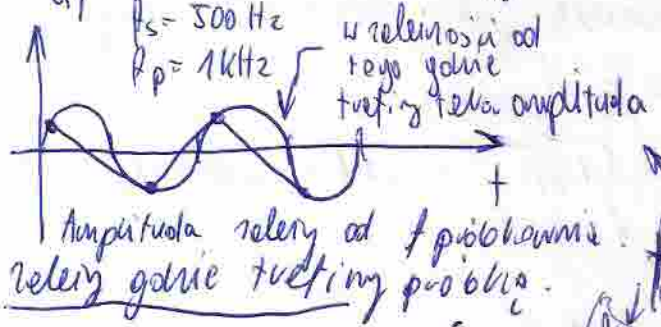 fs = 500 Hz
fp = 1kHz
w zależności od
tego gdzie
trafimy taka amplituda
t
Amplituda zależy od f próbkowania.
zależy gdzie trafimy próbką.